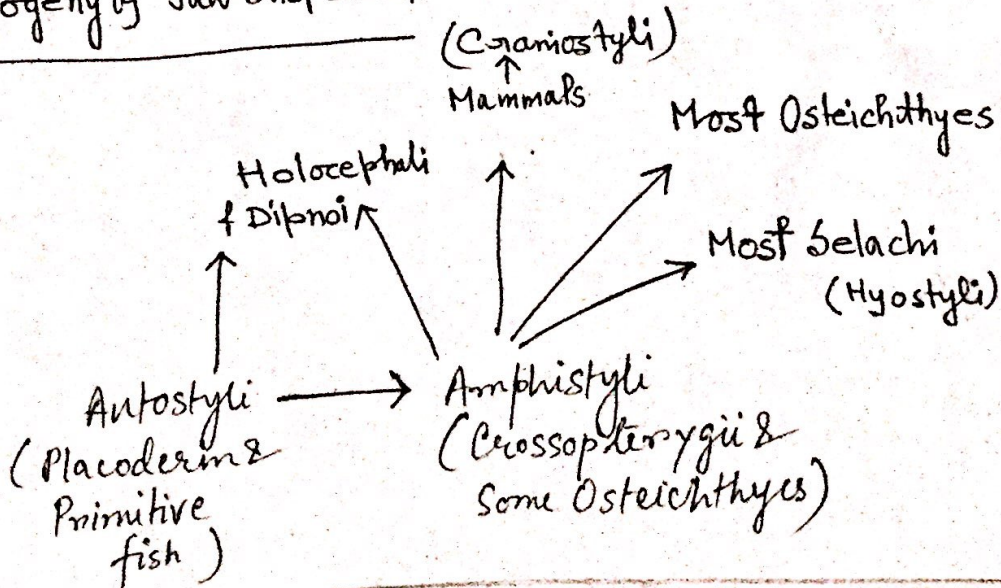 (Craniostyli)
Mammals
Most Osteichthyes
Holocephali
& Dipnoi
Most Selachi
(Hyostyli)
Autostyli
Amphistyli
(Placoderm &
Primitive
fish)
(Crossopterygii &
Some Osteichthyes)